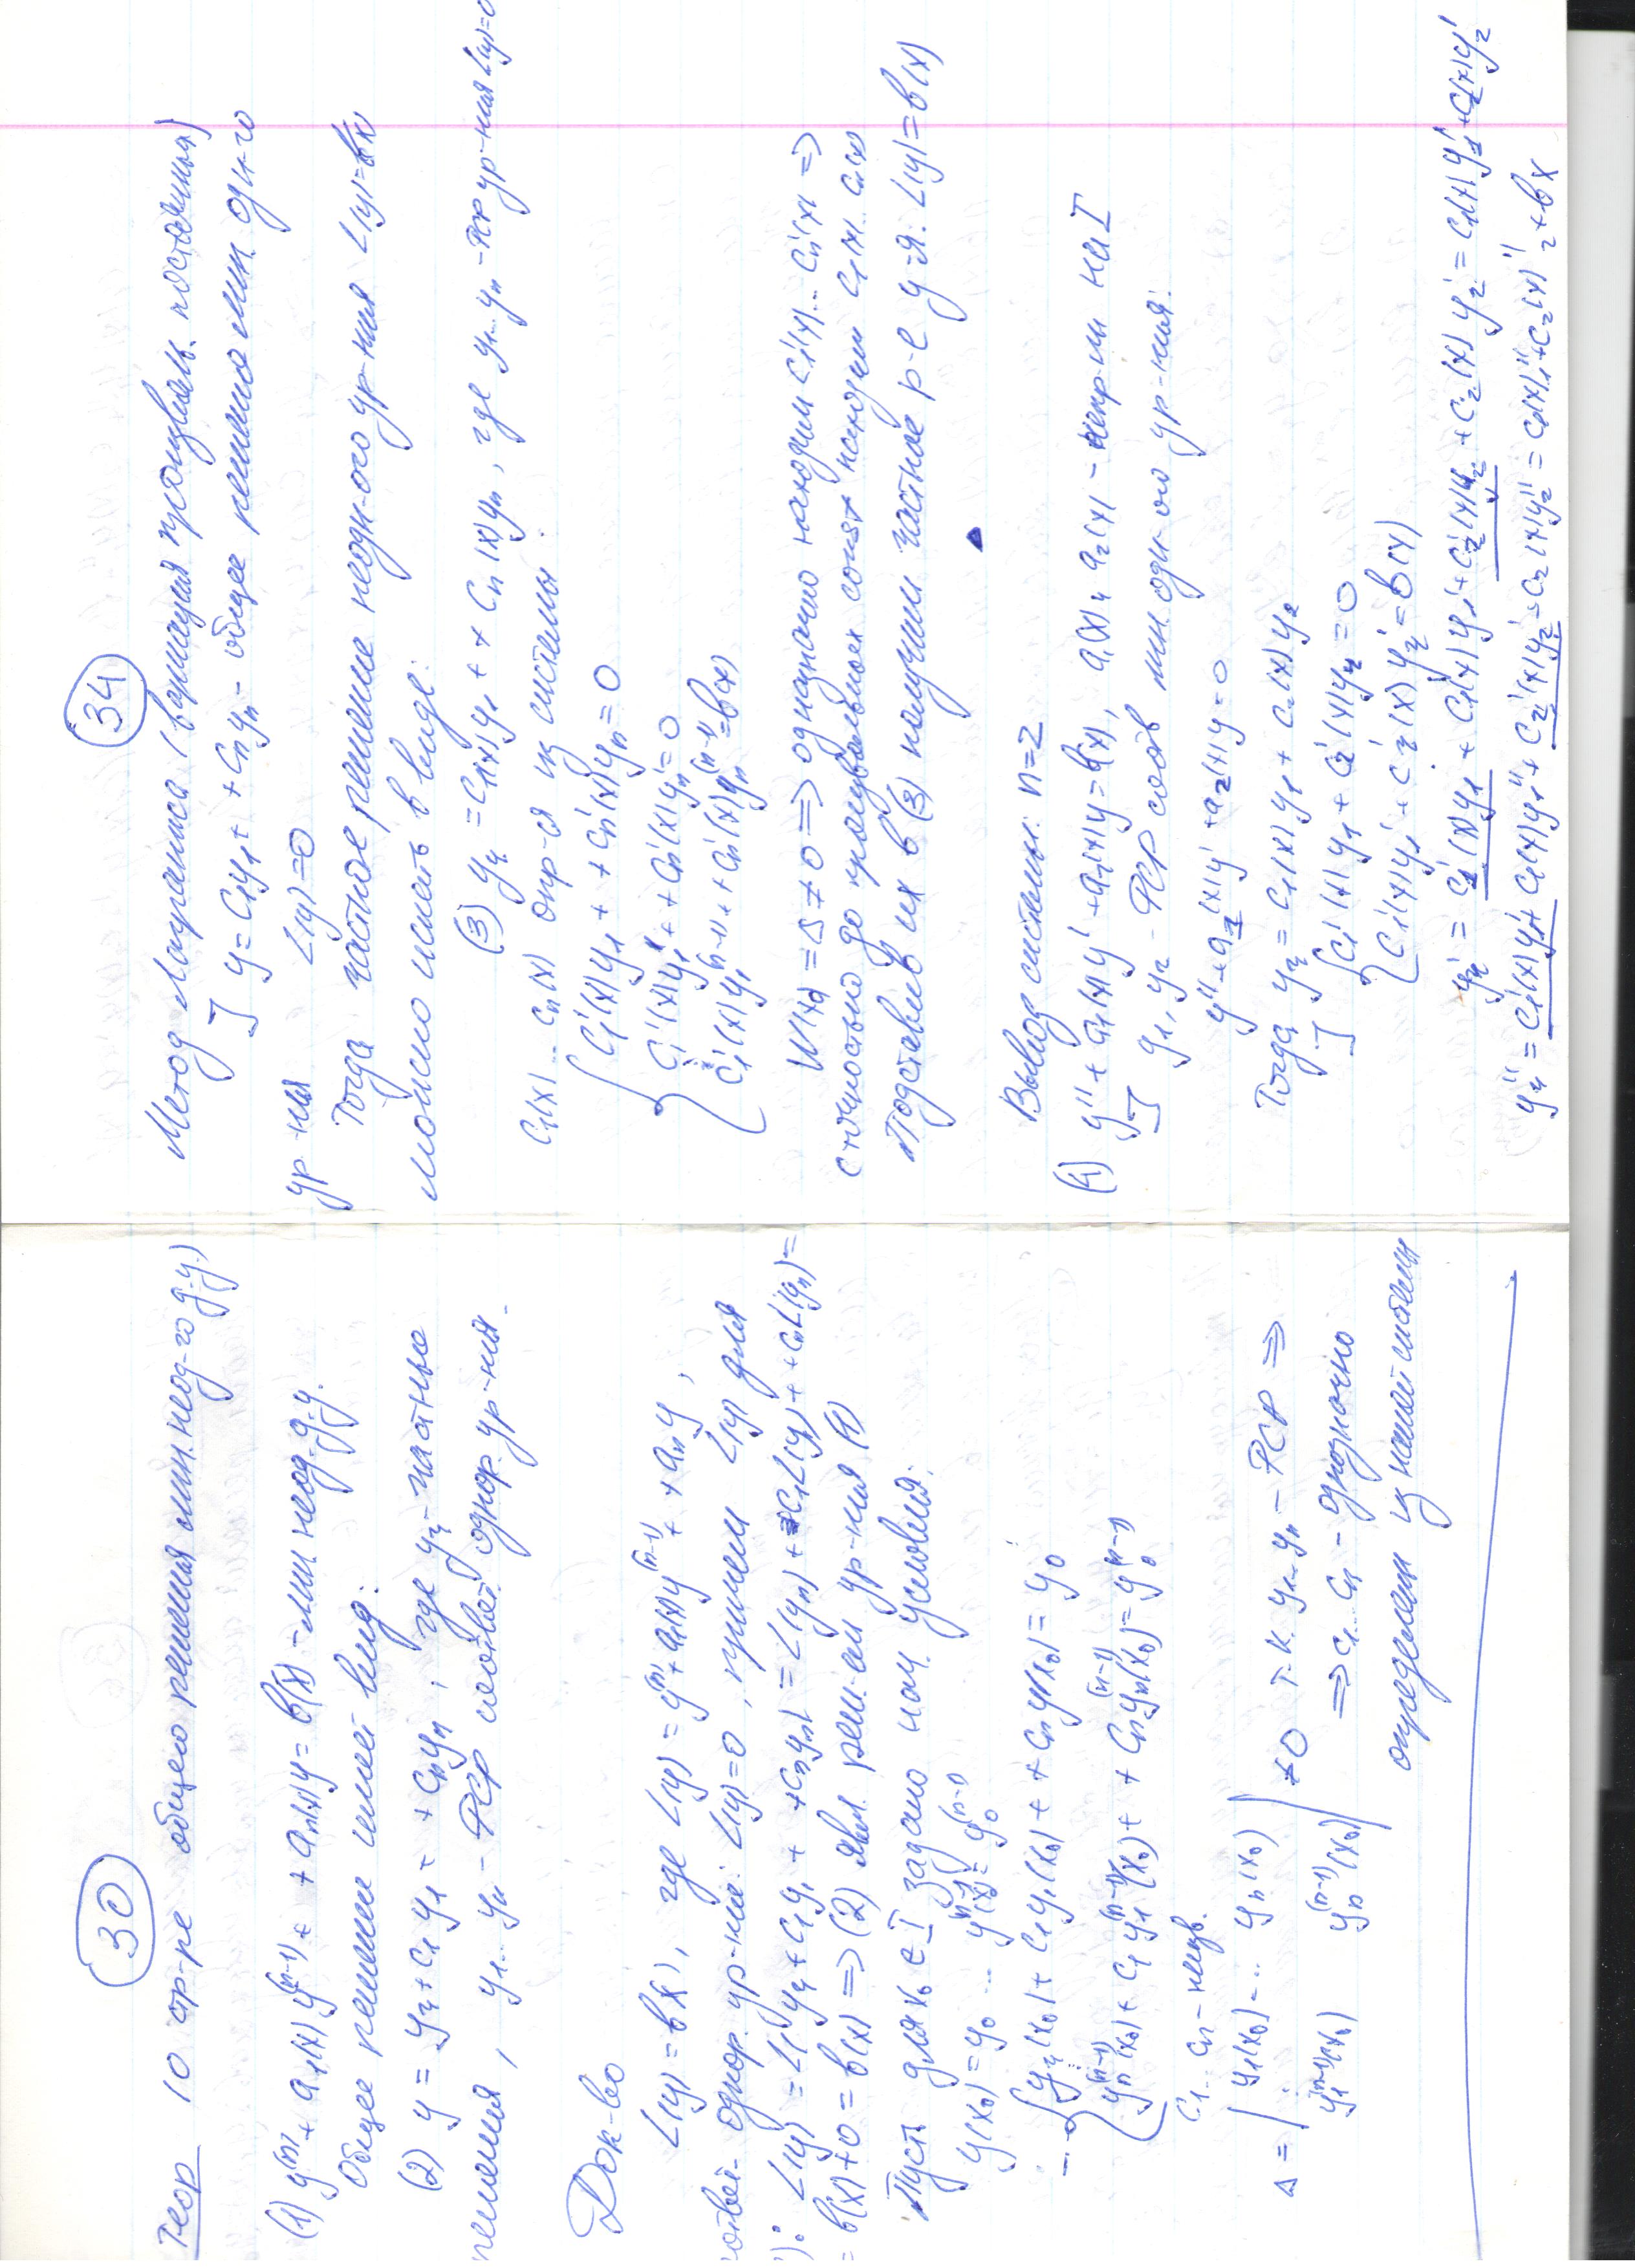 30
Теор 10 стр-ре общего решения лин. неод-го д.у.)
(1) y^(n) + a₁(x) y^(n-1) + + aₙ(x)y = b(x) – лин неод. д.у.
Общее решение имеет вид:
(2) y = yч + c₁y₁ + + cₙyₙ, где yч – частное
решения, y₁.. yₙ – ФСР соответ. однор. ур-ния.
Док-во
L(y) = b(x), где L(y) = y^(n) + a₁(x)y^(n-1) + + aₙy,
однор. ур-ние: L(y)=0, L(y) для
): L(y) = L(yч + c₁y₁ + + cₙyₙ) = L(yч) + c₁L(y₁) + + cₙL(yₙ) =
= b(x)+0 = b(x) ⇒ (2) явл. реш-ем ур-ния (1)
Пусть для x₀ ∈ I задано нач. условия:
y(x₀) = y₀ ... y^(n-1)(x₀) = y₀^(n-1)
{ yч(x₀) + c₁y₁(x₀) + + cₙyₙ(x₀) = y₀
yч^(n-1)(x₀) + c₁y₁^(n-1)(x₀) + + cₙyₙ^(n-1)(x₀) = y₀^(n-1)
c₁.. cₙ – неизв.
Δ = | y₁(x₀) ... yₙ(x₀) | ≠ 0 т.к. y₁..yₙ – ФСР ⇒
y₁^(n-1)(x₀) yₙ^(n-1)(x₀) ⇒ c₁.. cₙ – однозначно
определим из нашей системы
34
Метод Лагранжа (вариация произвольн. постоянных)
] y = c₁y₁ + + cₙyₙ – общее решение лин. одн-го
ур-ния L(y)=0
Тогда частное решение неодн-ого ур-ния L(y)=b(x)
можно искать в виде:
(3) yч = c₁(x)y₁ + + cₙ(x)yₙ, где y₁.. yₙ – ФСР ур-ния L(y)=0
c₁(x).. cₙ(x) опр-ся из системы:
{ c₁'(x)y₁ + + cₙ'(x)yₙ = 0
c₁'(x)y₁' + + cₙ'(x)yₙ' = 0
c₁'(x)y₁^(n-1) + + cₙ'(x)yₙ^(n-1) = b(x)
W(x) = Δ ≠ 0 ⇒ однозначно находим c₁'(x).. cₙ'(x) ⇒
с точностью до произвольных const находим c₁(x).. cₙ(x)
Подставив их в (3) получим частное р-е у-я: L(y) = b(x)
Вывод системы: n=2
(4) y'' + a₁(x)y' + a₂(x)y = b(x), a₁(x) и a₂(x) – непр-ны на I
] y₁, y₂ – ФСР соотв лин одн-ого ур-ния:
y'' + a₁(x)y' + a₂(x)y = 0
Тогда yч = c₁(x)y₁ + c₂(x)y₂
] { c₁'(x)y₁ + c₂'(x)y₂ = 0
c₁'(x)y₁' + c₂'(x)y₂' = b(x)
yч' = c₁'(x)y₁ + c₁(x)y₁' + c₂'(x)y₂ + c₂(x)y₂' = c₁(x)y₁' + c₂(x)y₂'
yч'' = c₁'(x)y₁' + c₁(x)y₁'' + c₂'(x)y₂' = c₂(x)y₂'' = c₁(x)₁'' + c₂(x)''₂ + bx